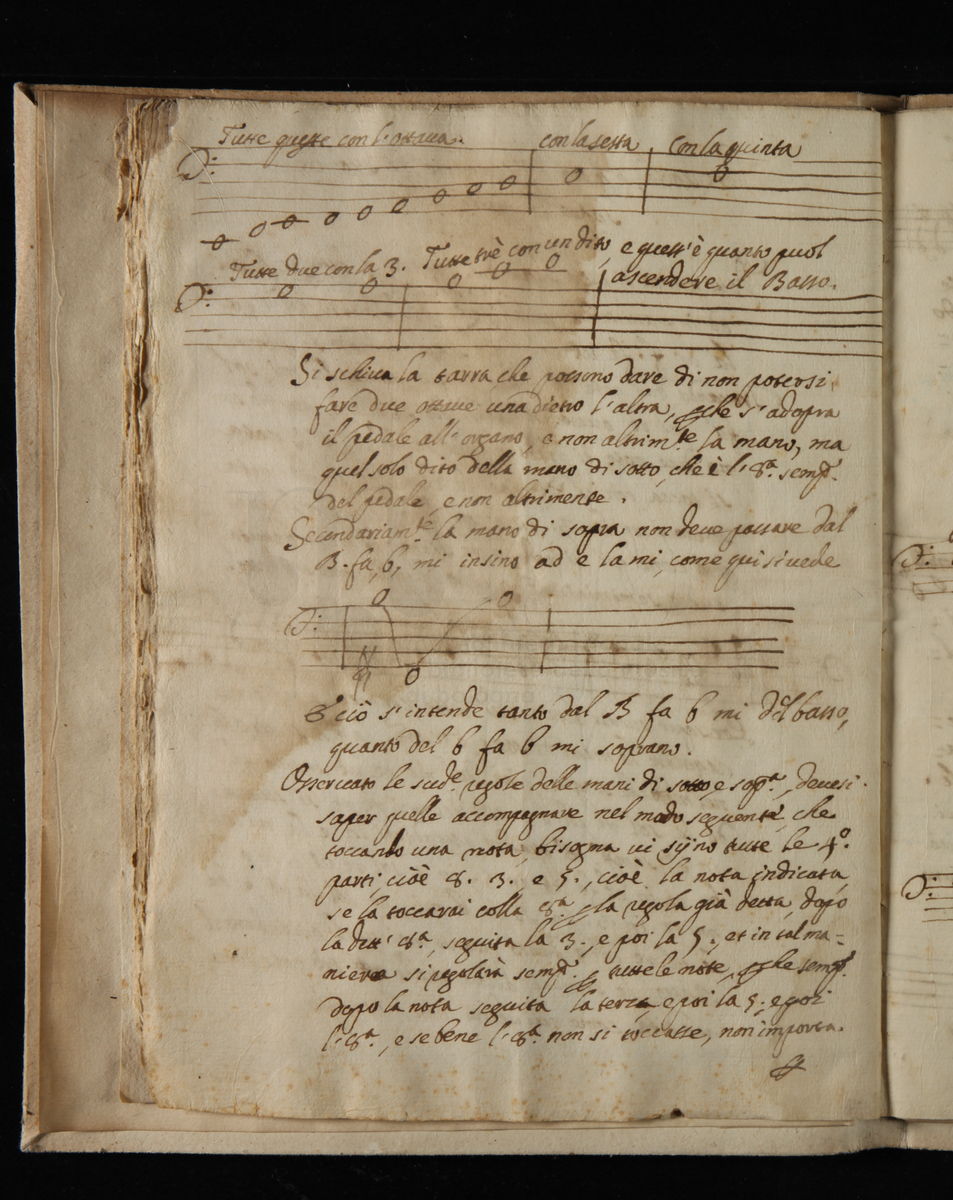 Tutte queste con l'ottava. con la sesta con la quinta
Tutte due con la 3. Tutte trè con un dito, e quest'è quanto puol
ascendere il Basso.
Si schiva la tarra che possono dare di non potersi
fare due ottave una dietro l'altra, p̱che s'adopra
il pedale all'organo, e non altrim.te la mano, ma
quel solo dito della mano di sotto, che è l'8.a semp.
del pedale, e non altrimente.
Secundariam.te la mano di sopra non deve passare dal
B. fa, b, mi insino ad e la mi, come qui si vede
E ciò s'intende tanto dal B fa b mi del basso,
quanto del b fa b mi soprano.
Osservato le sud.e regole delle mani di sotto, e sop.a, devesi
saper quelle accompagnare nel modo seguente, che
toccando una nota, bisogna vi sijno tutte le 4.o
parti, cioè 8. 3. e 5., cioè la nota indicata,
se la toccarai colla 8.a p̱ la regola già detta, dopo
la dett' 8.a, seguita la 3., e poi la 5., et in tal ma=
niera si regolarà semp. p̱ tutte le note, p̱che semp.
dopo la nota seguita la terza, e poi la 5; e poi
l'8.a, e se bene l'8.a non si toccasse, non importa.
p̱